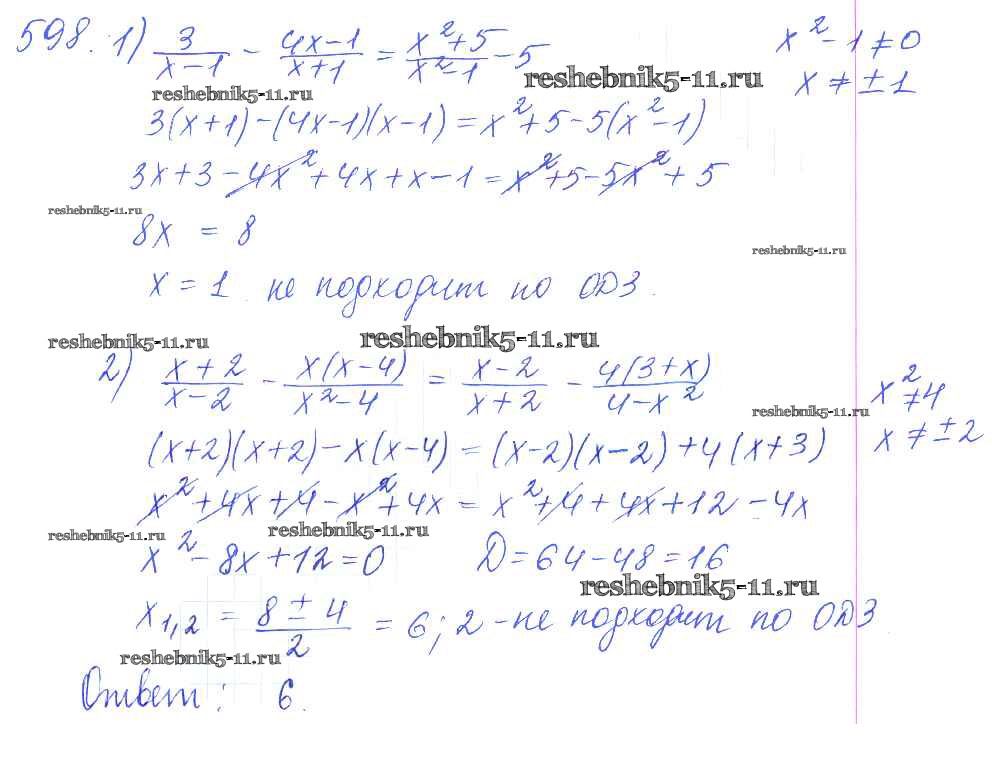 598. 1) 3/(x-1) - (4x-1)/(x+1) = (x²+5)/(x²-1) - 5    x²-1≠0
reshebnik5-11.ru    reshebnik5-11.ru    x≠±1
3(x+1)-(4x-1)(x-1)=x²+5-5(x²-1)
3x+3-4x²+4x+x-1=x²+5-5x²+5
reshebnik5-11.ru
8x = 8
reshebnik5-11.ru
x=1 не подходит по ОДЗ.
reshebnik5-11.ru    reshebnik5-11.ru
2) (x+2)/(x-2) - x(x-4)/(x²-4) = (x-2)/(x+2) - 4(3+x)/(4-x²)    x²≠4
reshebnik5-11.ru
(x+2)(x+2)-x(x-4)=(x-2)(x-2)+4(x+3)    x≠±2
x²+4x+4-x²+4x=x²+4+4x+12-4x
reshebnik5-11.ru    reshebnik5-11.ru
x²-8x+12=0    D=64-48=16
reshebnik5-11.ru
x1,2 = (8±4)/2 = 6; 2-не подходит по ОДЗ
reshebnik5-11.ru
Ответ: 6.